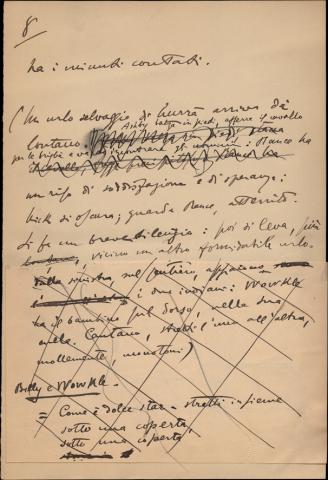 8
ha i minuti contati.
(Un urlo selvaggio di hurrà arriva da
lontano.
Ashby balza in piedi, afferra il cavallo
per le briglie e va ad incontrare gli uomini: Rance ha
un riso di soddisfazione e di speranza:
Nick di
guarda Rance, atterrito.
Si fa un breve silenzio: poi si leva, più
vicino un altro formidabile urlo.
sinistra sul sentiero, appaiono
i due indiani: Wowkle
ha il bambino sul dorso, nella sua
culla. Cantano, stretti l'uno all'altra,
mollemente, monotoni)
Billy e Wowkle -
= Come è dolce star - stretti insieme
sotto una coperta,
sotto una coperta